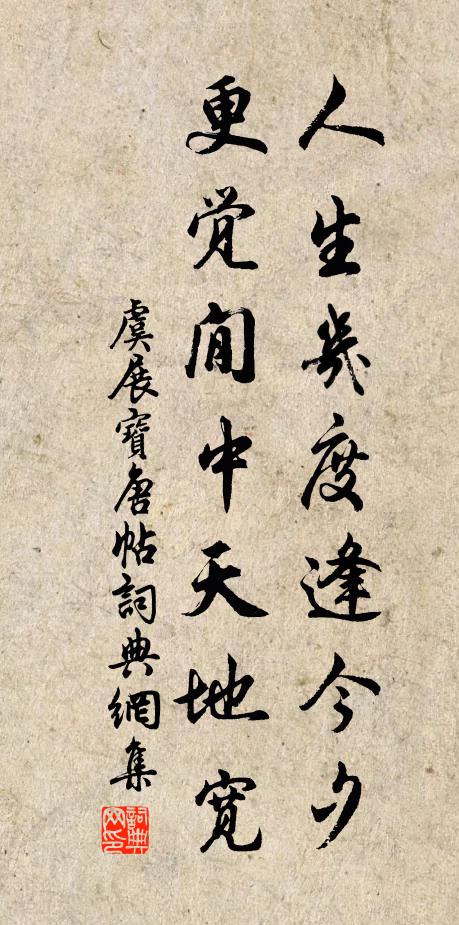 人生幾度逢今夕
更觉閒中天地寬
虞展寶唐帖詞典網集
詞典网印